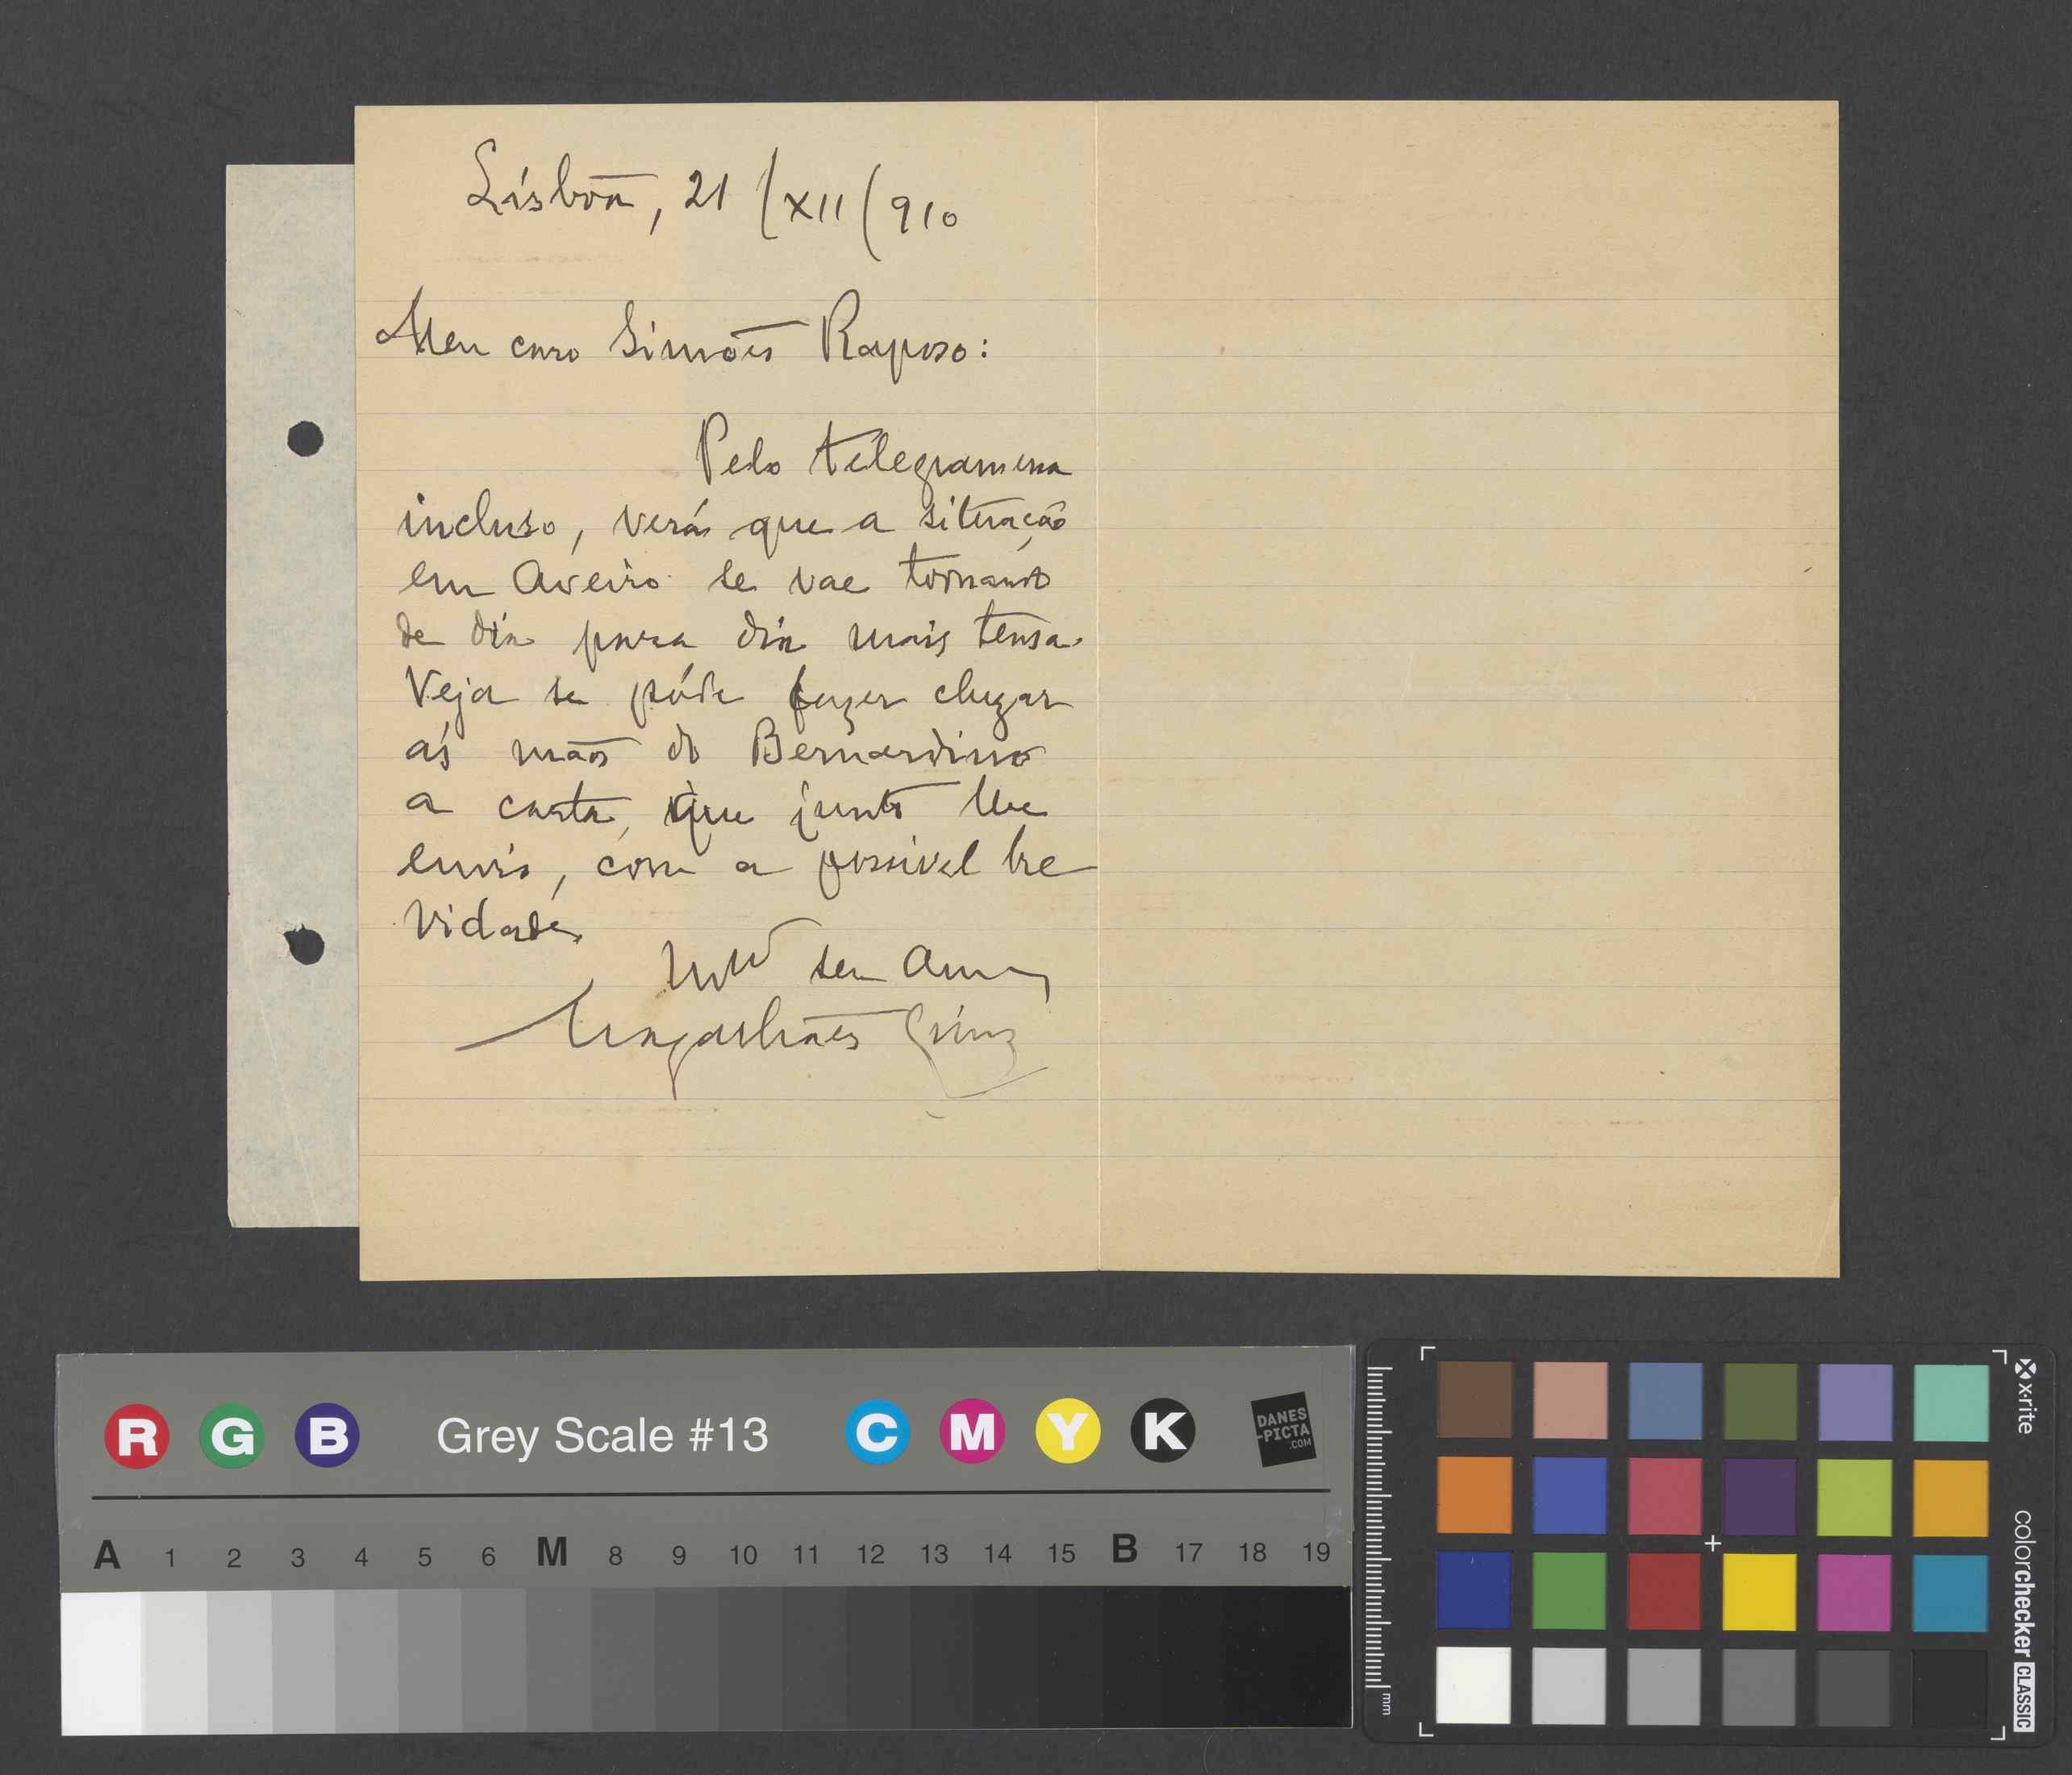 Lisbôa, 21/XII/910
Meu caro Simões Raposo:
Pelo telegramma
incluso, verá que a situação
em Aveiro se vae tornando
de dia para dia mais tensa.
Veja se póde fazer chegar
ás mãos do Bernardino
a carta, que junto lhe
envio, com a possivel bre
vidade.
seu
Magalhães
R G B Grey Scale #13 C M Y K
DANES
-PICTA
.COM
A 1 2 3 4 5 6 M 8 9 10 11 12 13 14 15 B 17 18 19
x-rite
colorchecker CLASSIC
mm